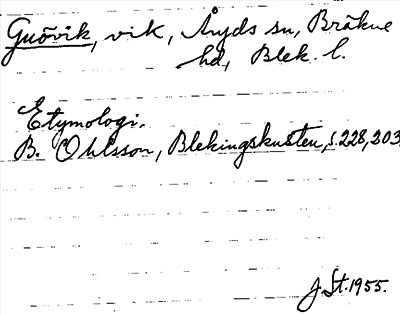 Guövik, vik, Åryds sn, Bräkne
hd, Blek. l.
Etymologi.
B. Ohlsson, Blekingskusten, s. 228, 203
J. St. 1955.